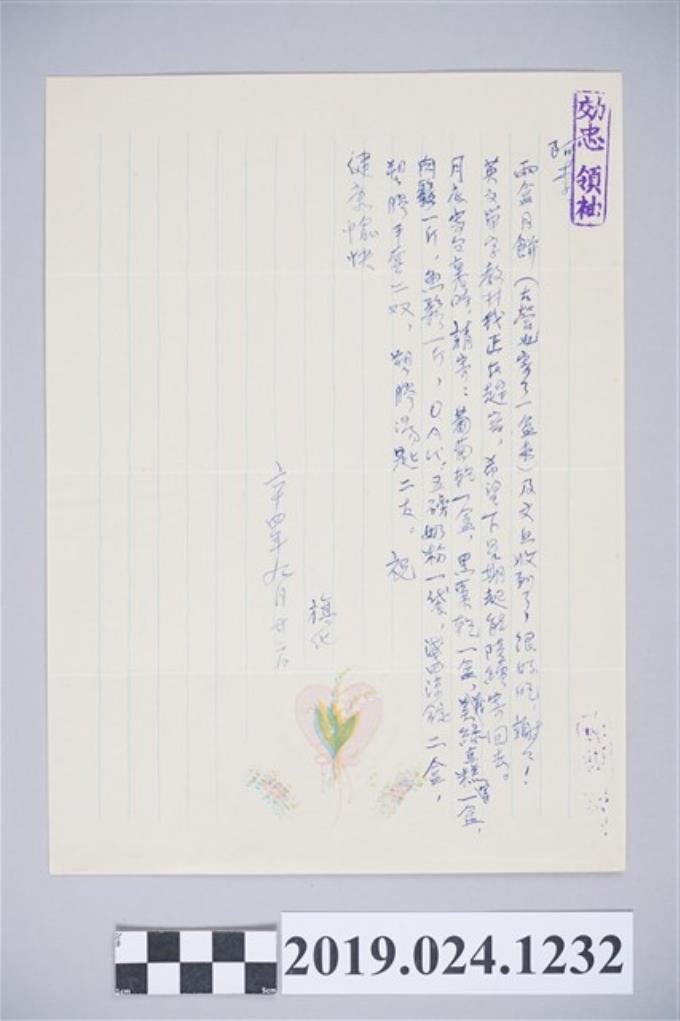 効忠 領袖
阿李
兩盒月餅(大營也寄了一盒來)及文旦收到了,很好吃,謝々!
英文單字教材我正在趕寫,希望下星期起能陸續寄回去。
月底寄包裹時,請寄:葡萄乾一盒,黑棗乾一盒,綠豆糕一盒,
肉鬆一斤,魚鬆一斤,OAK五磅奶粉一袋,涼錠二盒,
塑膠手套二双,塑膠湯匙二支。 祝
健康愉快
旗化
六十四年九月廿二日
2019.024.1232